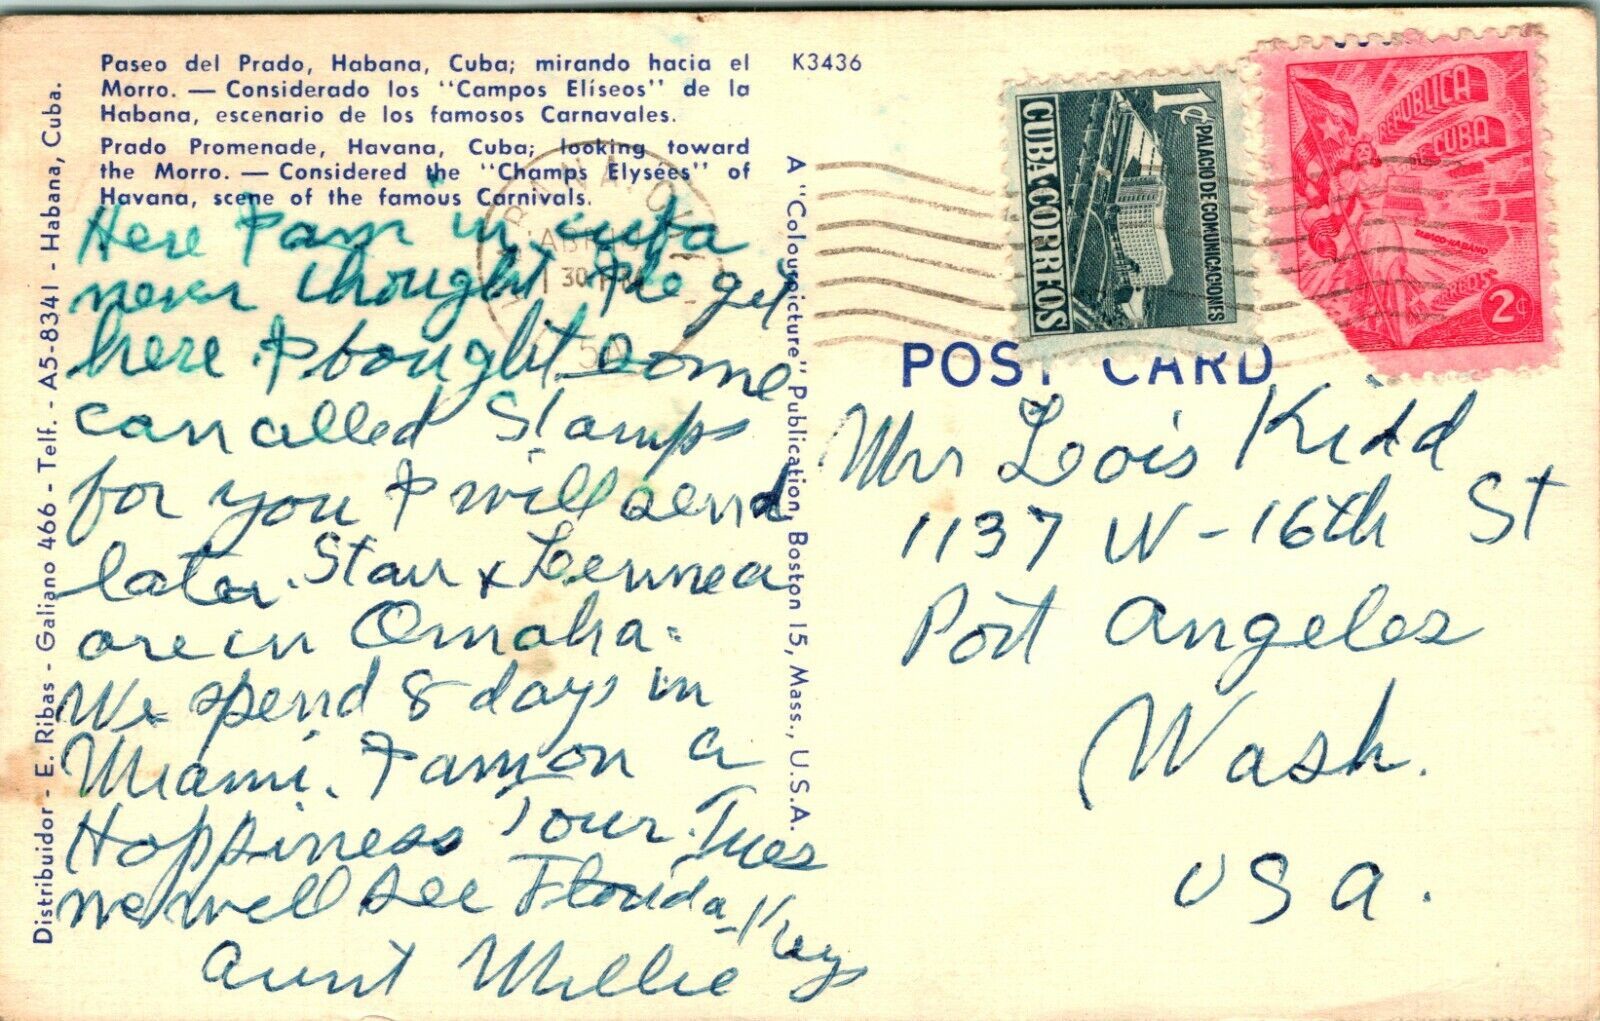 Paseo del Prado, Habana, Cuba; mirando hacia el
Morro. — Considerado los "Campos Elíseos" de la
Habana, escenario de los famosos Carnavales.
Prado Promenade, Havana, Cuba; looking toward
the Morro. — Considered the "Champs Elysees" of
Havana, scene of the famous Carnivals.
K3436
Here I am in cuba
never thought I'de get
here. I bought some
cancelled Stamps
for you & will send
later. Stan &
are in Omaha.
We spend 8 days in
Miami. I am on a
Happiness Tour. Tues
we will see Florida Keys
Aunt Millie
Distribuidor - E. Ribas - Galiano 466 - Telf. - A5-8341 - Habana, Cuba.
A "Colourpicture" Publication, Boston 15, Mass., U.S.A.
1¢
PALACIO DE COMUNICACIONES
CUBA CORREOS
REPUBLICA
CUBA
TABACO HABANO
2¢
ABR
30
POST CARD
Mrs Lois Kidd
1137 W-16th St
Port Angeles
Wash.
USA.